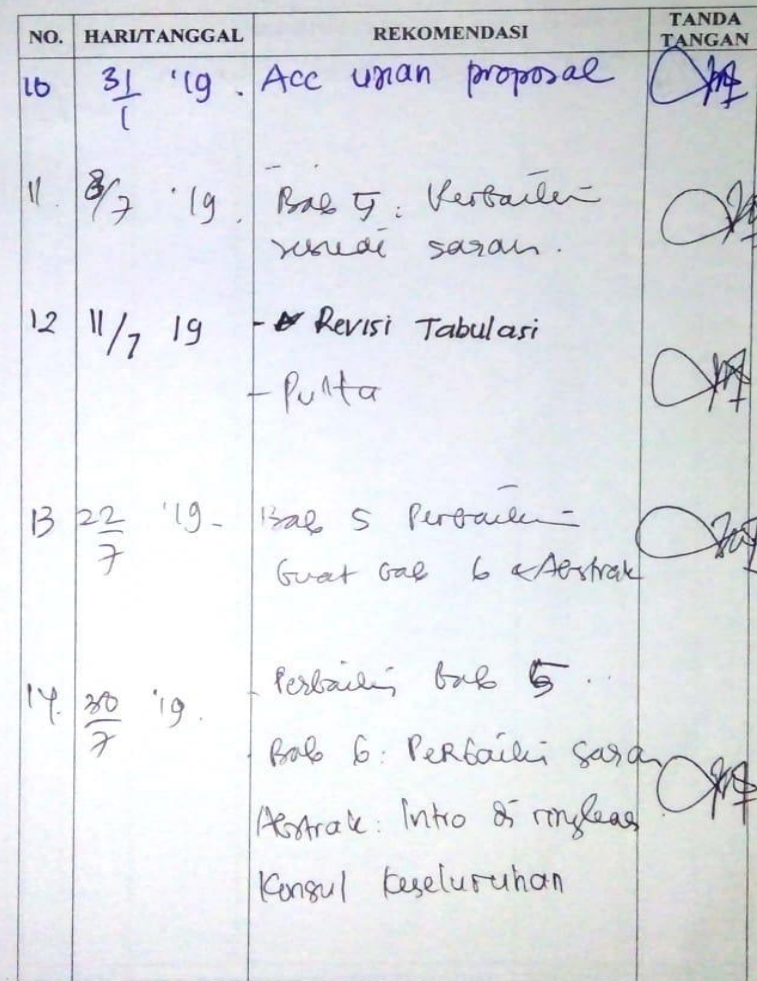 NO. HARI/TANGGAL REKOMENDASI TANDA TANGAN
10 31/1 '19. Acc ujian proposal
11. 8/7 '19. Bab 5: Perbaiki
sesuai saran.
12 11/7 19 - Revisi Tabulasi
-
13 22/7 '19- Bab 5 Perbaiki
buat bab 6 & Abstrak
14. 30/7 '19. - Perbaiki bab 5..
- Bab 6: Perbaiki saran
Abstrak: Intro di ringkas
Konsul keseluruhan